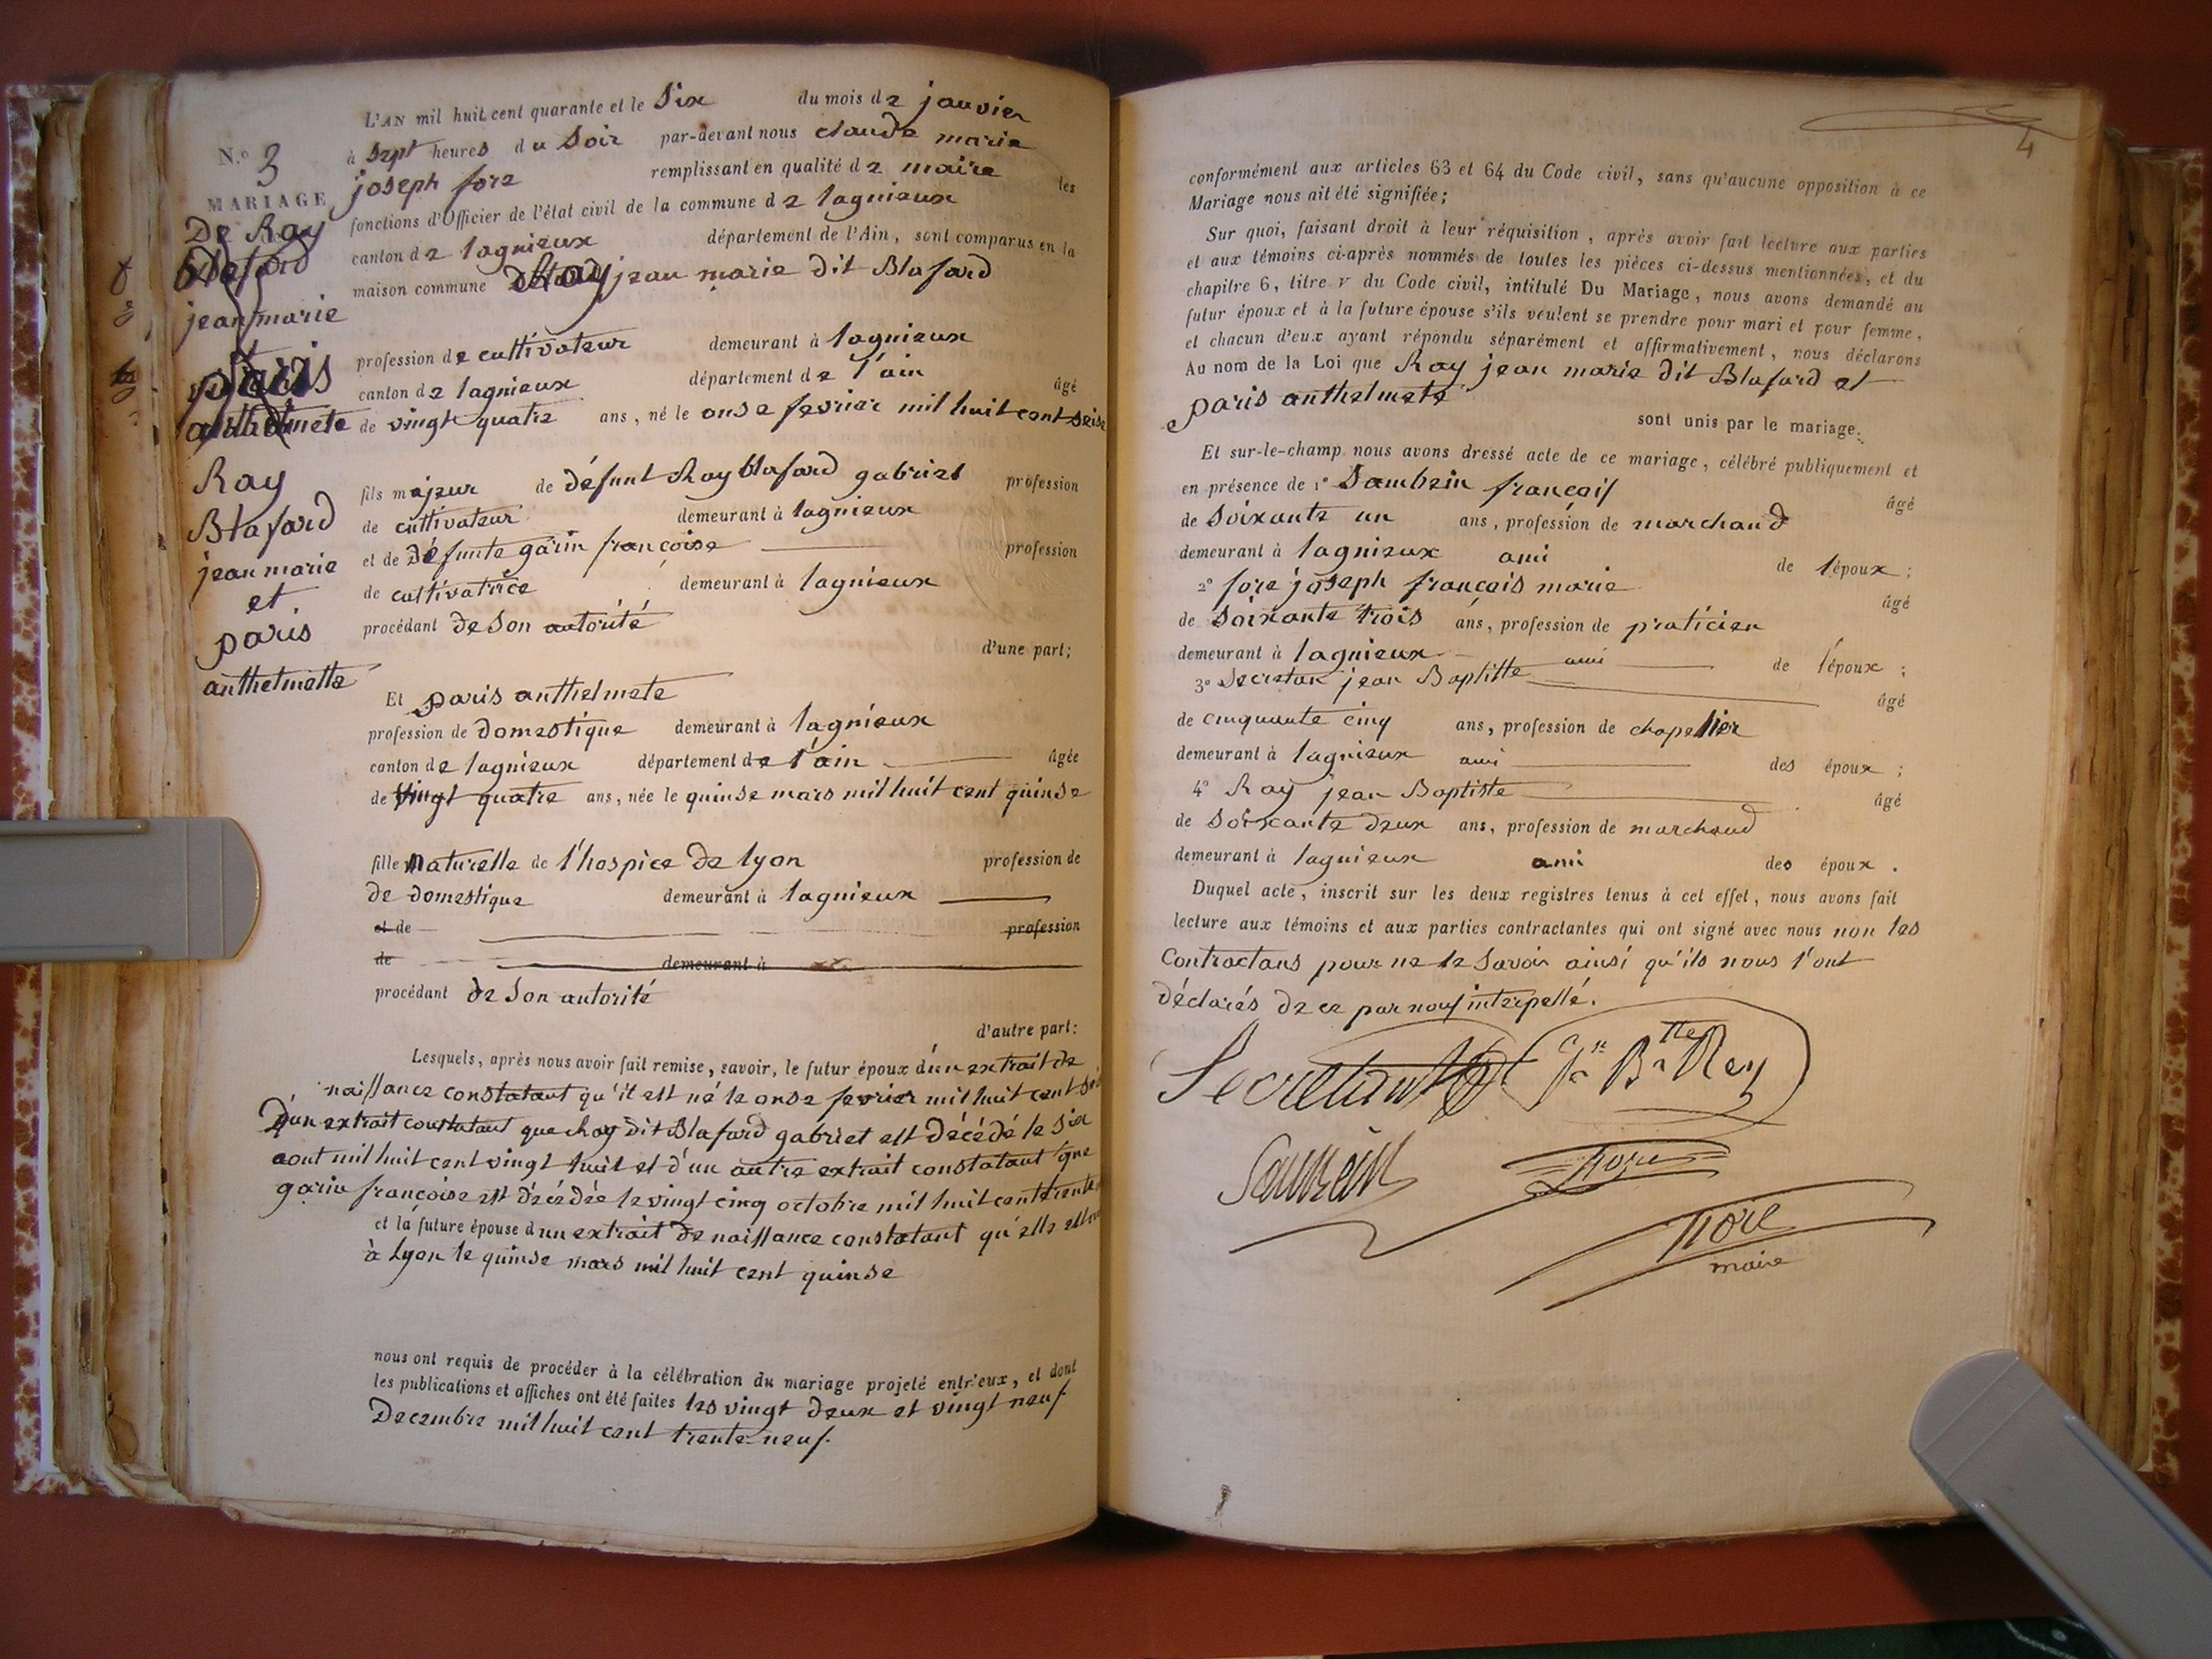 L'AN mil huit cent quarante et le Six du mois de janvier
à sept heures du Soir par-devant nous claude marie
joseph fore remplissant en qualité de maire les
fonctions d'Officier de l'état civil de la commune de lagnieux
canton de lagnieux département de l'Ain, sont comparus en la
maison commune Ray jean marie dit Blafard
profession de cultivateur demeurant à lagnieux
canton de lagnieux département de l'ain âgé
de vingt quatre ans, né le onse fevrier mil huit cent seise
fils majeur de défunt Ray blafard gabriel profession
de cultivateur demeurant à lagnieux
et de défunte garin françoise profession
de cultivatrice demeurant à lagnieux
procédant de Son autorité
d'une part;
Et paris anthelmete
profession de domestique demeurant à lagnieux
canton de lagnieux département de l'ain âgée
de vingt quatre ans, née le quinse mars mil huit cent quinse
fille naturelle de l'hospice de lyon profession de
de domestique demeurant à lagnieux
et de profession
de demeurant à
procédant de Son autorité
d'autre part:
Lesquels, après nous avoir fait remise, savoir, le futur époux d'un extrait de
naissance constatant qu'il est né le onse fevrier mil huit cent
D'un extrait constatant que Ray dit Blafard gabriel est décédé le six
aout mil huit cent vingt huit et d'un autre extrait constatant que
garin françoise est décédée le vingt cinq octobre mil huit cent trente
et la future épouse d'un extrait de naissance constatant qu'elle est
à Lyon le quinse mars mil huit cent quinse
nous ont requis de procéder à la célébration du mariage projeté entr'eux, et dont
les publications et affiches ont été faites les vingt deux et vingt neuf
Decembre mil huit cent trente-neuf.
N.° 3
MARIAGE
De Ray
Blafard
jean marie
paris
anthelmete
Ray
Blafard
jean marie
et
paris
anthelmette
4
conformément aux articles 63 et 64 du Code civil, sans qu'aucune opposition à ce
Mariage nous ait été signifiée;
Sur quoi, faisant droit à leur réquisition, après avoir fait lecture aux parties
et aux témoins ci-après nommés de toutes les pièces ci-dessus mentionnées, et du
chapitre 6, titre v du Code civil, intitulé Du Mariage, nous avons demandé au
futur époux et à la future épouse s'ils veulent se prendre pour mari et pour femme,
et chacun d'eux ayant répondu séparément et affirmativement, nous déclarons
Au nom de la Loi que Ray jean marie dit Blafard et
paris anthelmete
sont unis par le mariage.
Et sur-le-champ nous avons dressé acte de ce mariage, célébré publiquement et
en présence de 1° Sambein françois âgé
de Soixante un ans, profession de marchand
demeurant à lagnieux ami de l'époux;
2° fore joseph français marie âgé
de Soixante trois ans, profession de praticien
demeurant à lagnieux ami de l'époux;
3° Secretan jean Baptiste âgé
de cinquante cinq ans, profession de chapellier
demeurant à lagnieux ami des époux;
4° Ray jean Baptiste âgé
de Soixante deux ans, profession de marchand
demeurant à lagnieux ami des époux.
Duquel acte, inscrit sur les deux registres tenus à cet effet, nous avons fait
lecture aux témoins et aux parties contractantes qui ont signé avec nous non les
Contractans pour ne le Savoir ainsi qu'ils nous l'ont
déclarés de ce par nous interpellé.
Jn Btte Rey
fore
maire